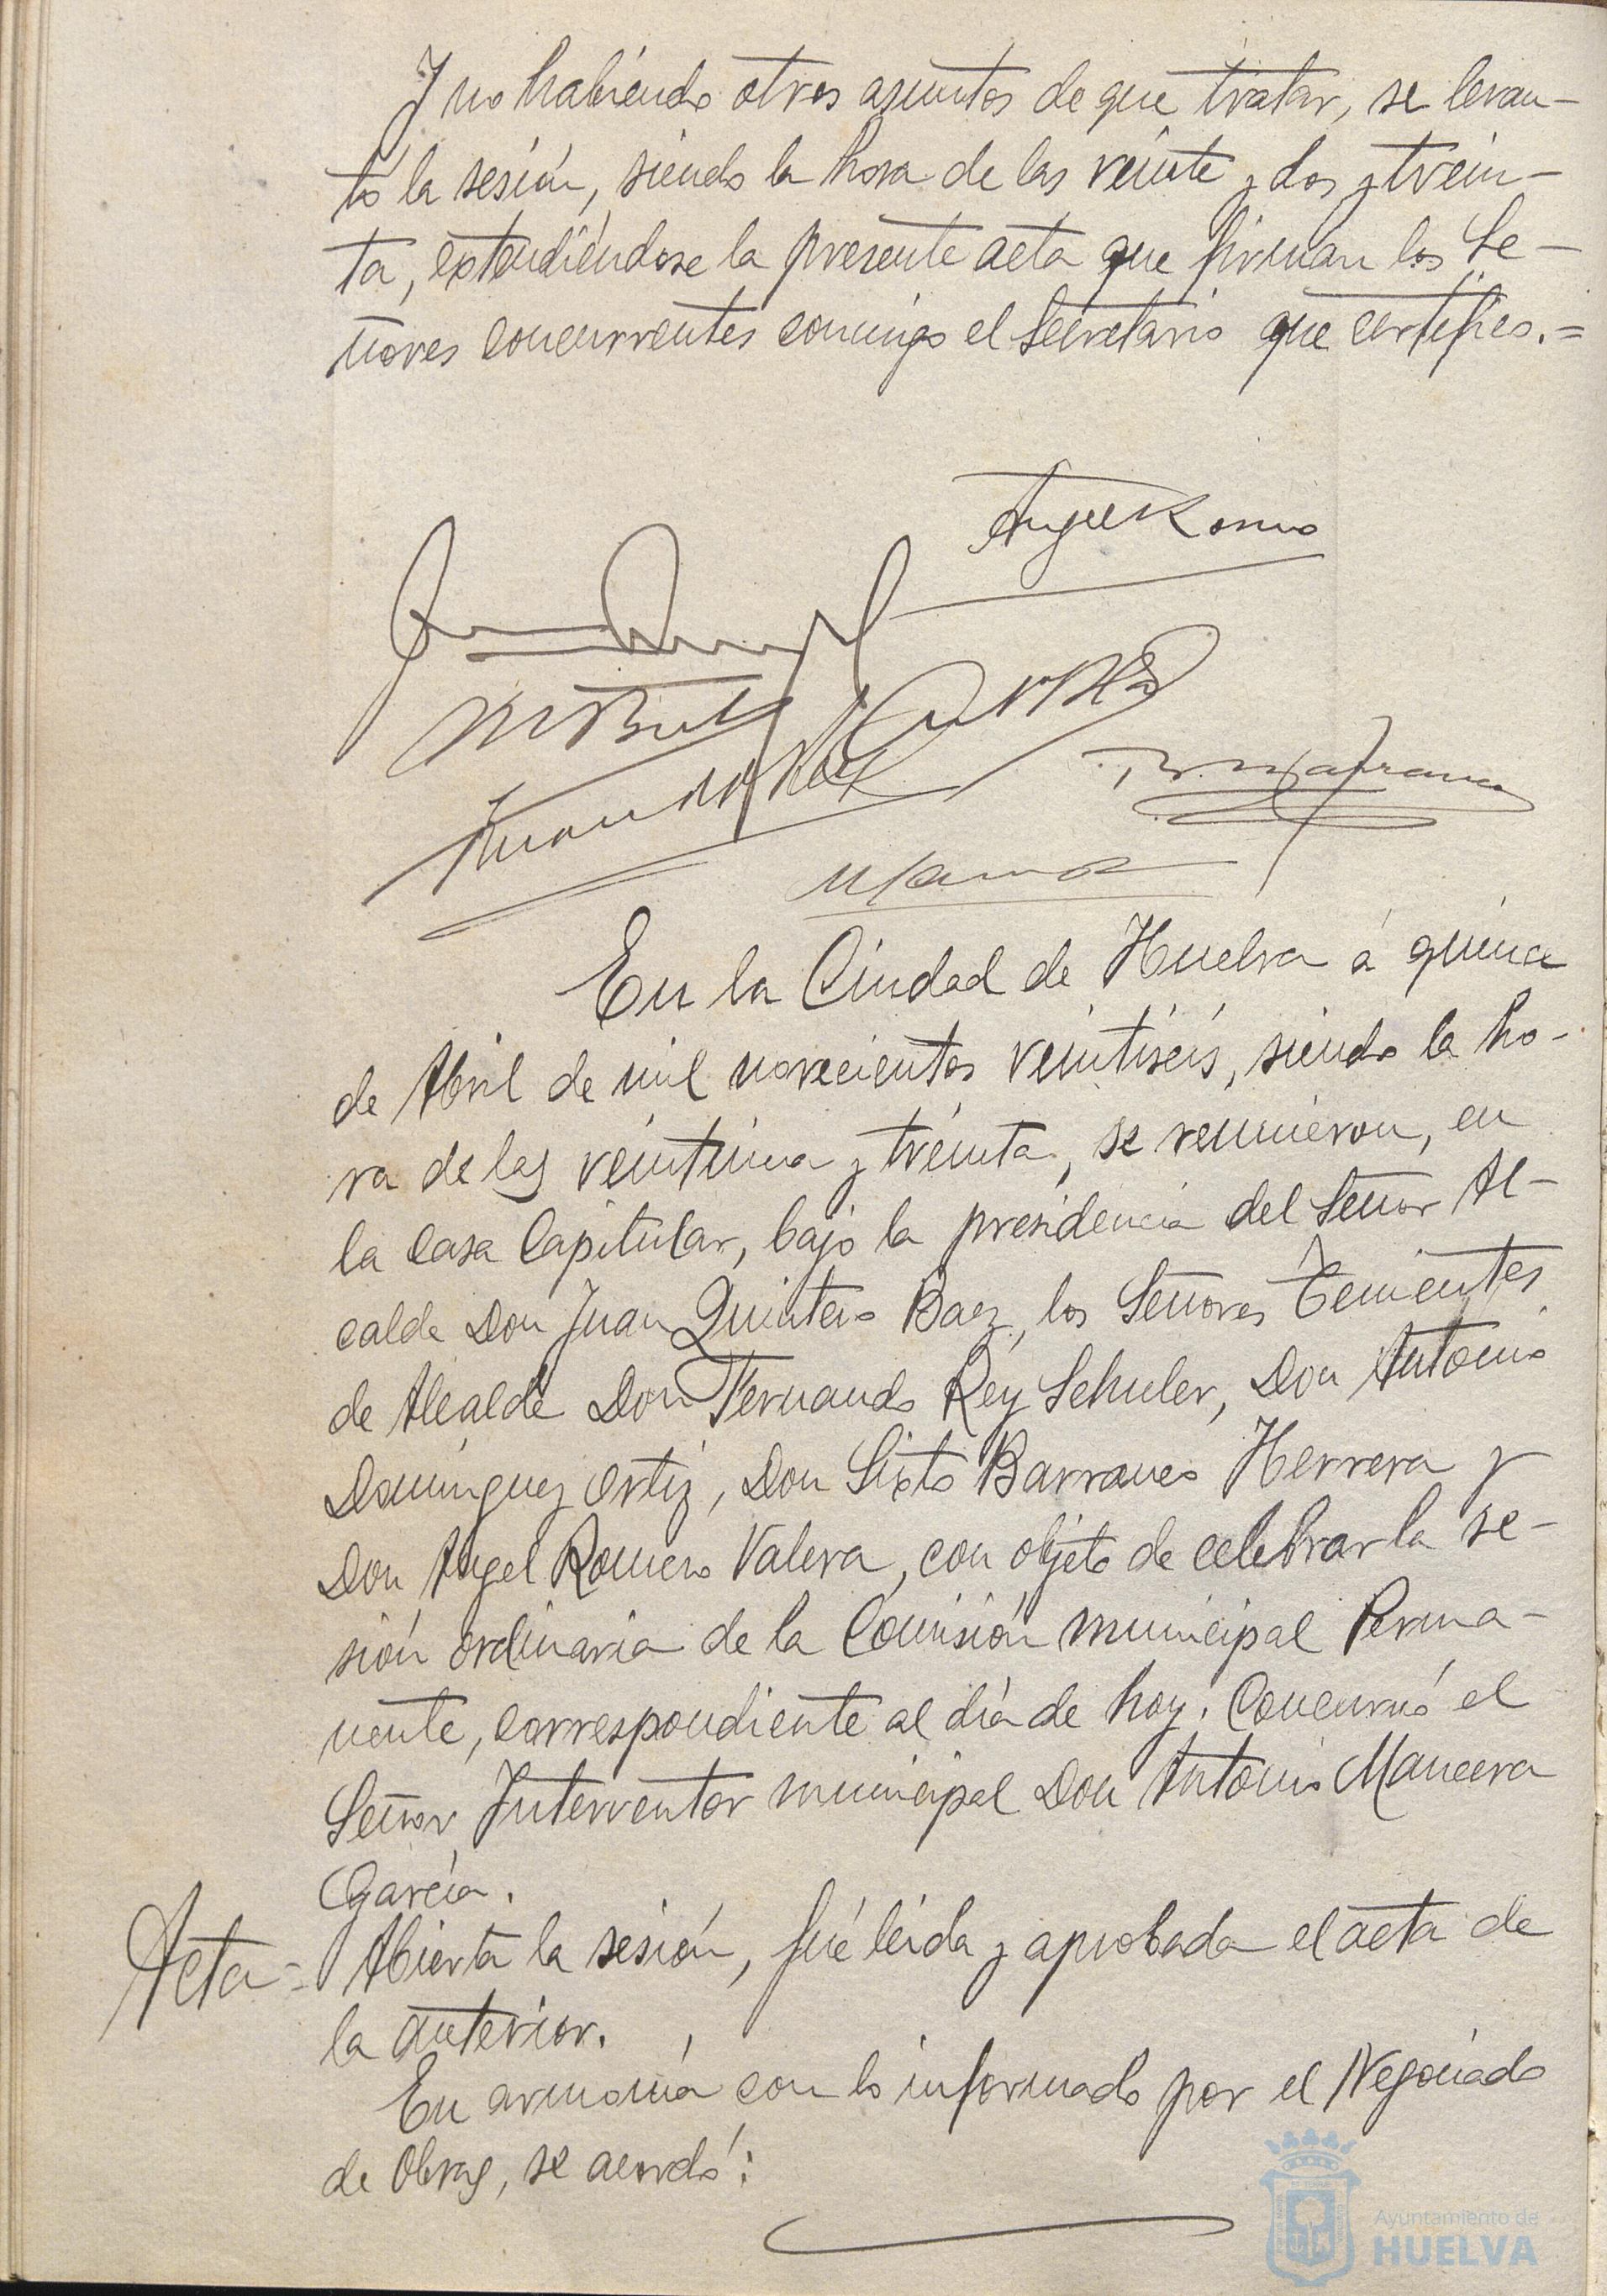 Y no habiendo otros asuntos de que tratar, se levan-
tó la sesión, siendo la hora de las veinte y dos y trein-
ta, extendiéndose la presente acta que firman los Se-
ñores concurrentes conmigo el Secretario que certifico.=
Angel Romero
En la Ciudad de Huelva á quince
de Abril de mil novecientos veintiséis, siendo la ho-
ra de las veintiuna y treinta, se reunieron, en
la Casa Capitular, bajo la presidencia del Señor Al-
calde Don Juan Quintero Baez, los Señores Tenientes
de Alcalde Don Fernando Rey Schuler, Don Antonio
Domínguez Ortiz, Don Sixto Barranco Herrera y
Don Angel Romero Valera, con objeto de celebrar la se-
sión ordinaria de la Comisión municipal Perma-
nente, correspondiente al día de hoy. Concurrió el
Señor Interventor municipal Don Antonio Mancera
García.
Acta= Abierta la sesión, fué leída y aprobada el acta de
la anterior.
En armonía con lo informado por el Negociado
de Obras, se acordó:
Ayuntamiento de
HUELVA